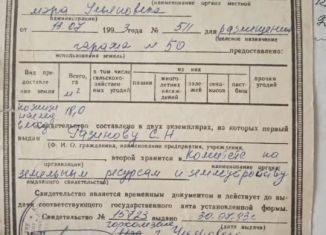 (наименование органа местной
мэра Ульяновска
администрации)
от 19 07 1993 года № 511 для размещения
(целевое назначение
гаража № 50 предоставлено:
использования земель)
Вид предоставления земель
Всего, га
м²
в том числе сельскохозяйственных угодий
из них
пашни
многолетних насаждений
залежей
сенокосов
пастбищ
прочих угодий
18,0
Свидетельство составлено в двух экземплярах, из которых первый
выдан С.Н.
(Ф. И. О. гражданина, наименование предприятия, учреждения,
второй хранится в Комитете по
организации)
земельным ресурсам и землеустройству
выдавшего свидетельство)
Свидетельство является временным документом и действует до
выдачи соответствующего государственного акта установленной формы.
Свидетельство № 15723 выдано 30.07.93г.
(дата выдачи)